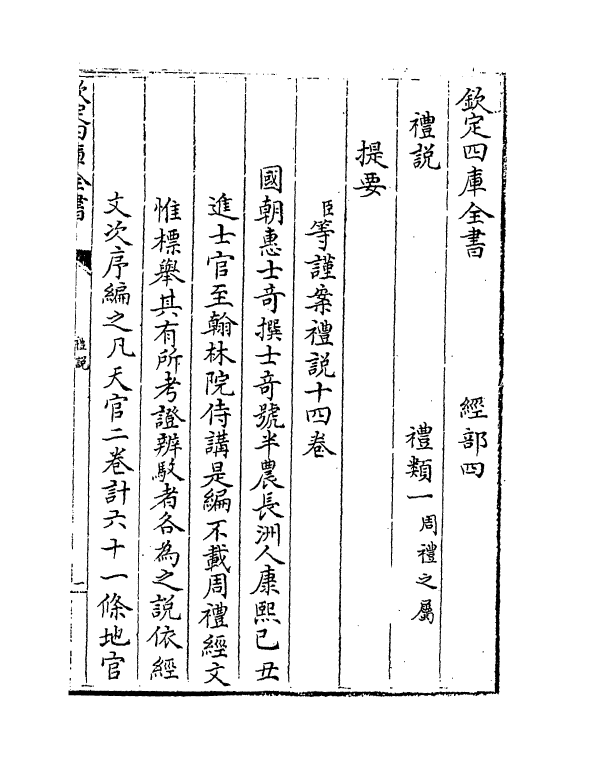 欽定四庫全書　經部四
禮説　禮類一周禮之屬
提要
臣等謹案禮説十四卷
國朝惠士奇撰士奇號半農長洲人康熙己丑
進士官至翰林院侍講是編不載周禮經文
惟標舉其有所考證辨駁者各為之説依經
文次序編之凡天官二卷計六十一條地官
欽定四庫全書
禮説
一